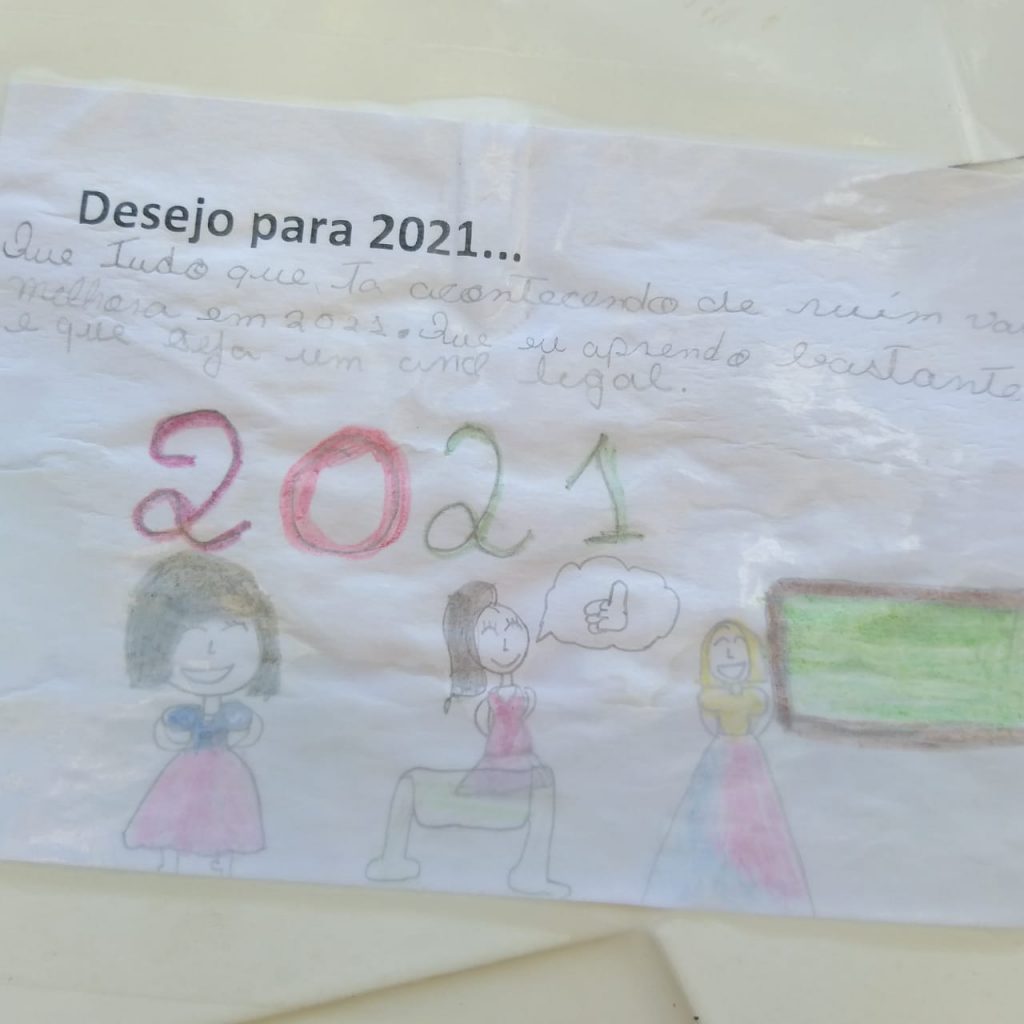 Desejo para 2021...
Que Tudo que ta acontecendo de ruim va
melhora em 2021. Que eu aprendo bastante
e que seja um ano legal.
2021